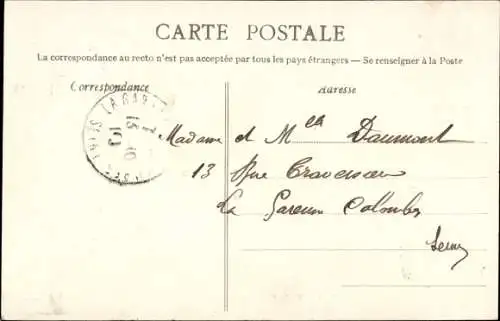 CARTE POSTALE
La correspondance au recto n'est pas acceptée par tous les pays étrangers — Se renseigner à la Poste
Correspondance
Adresse
Madame et Mlle Daumont
13 Rue Traversière
La Garenne Colombes
Seine